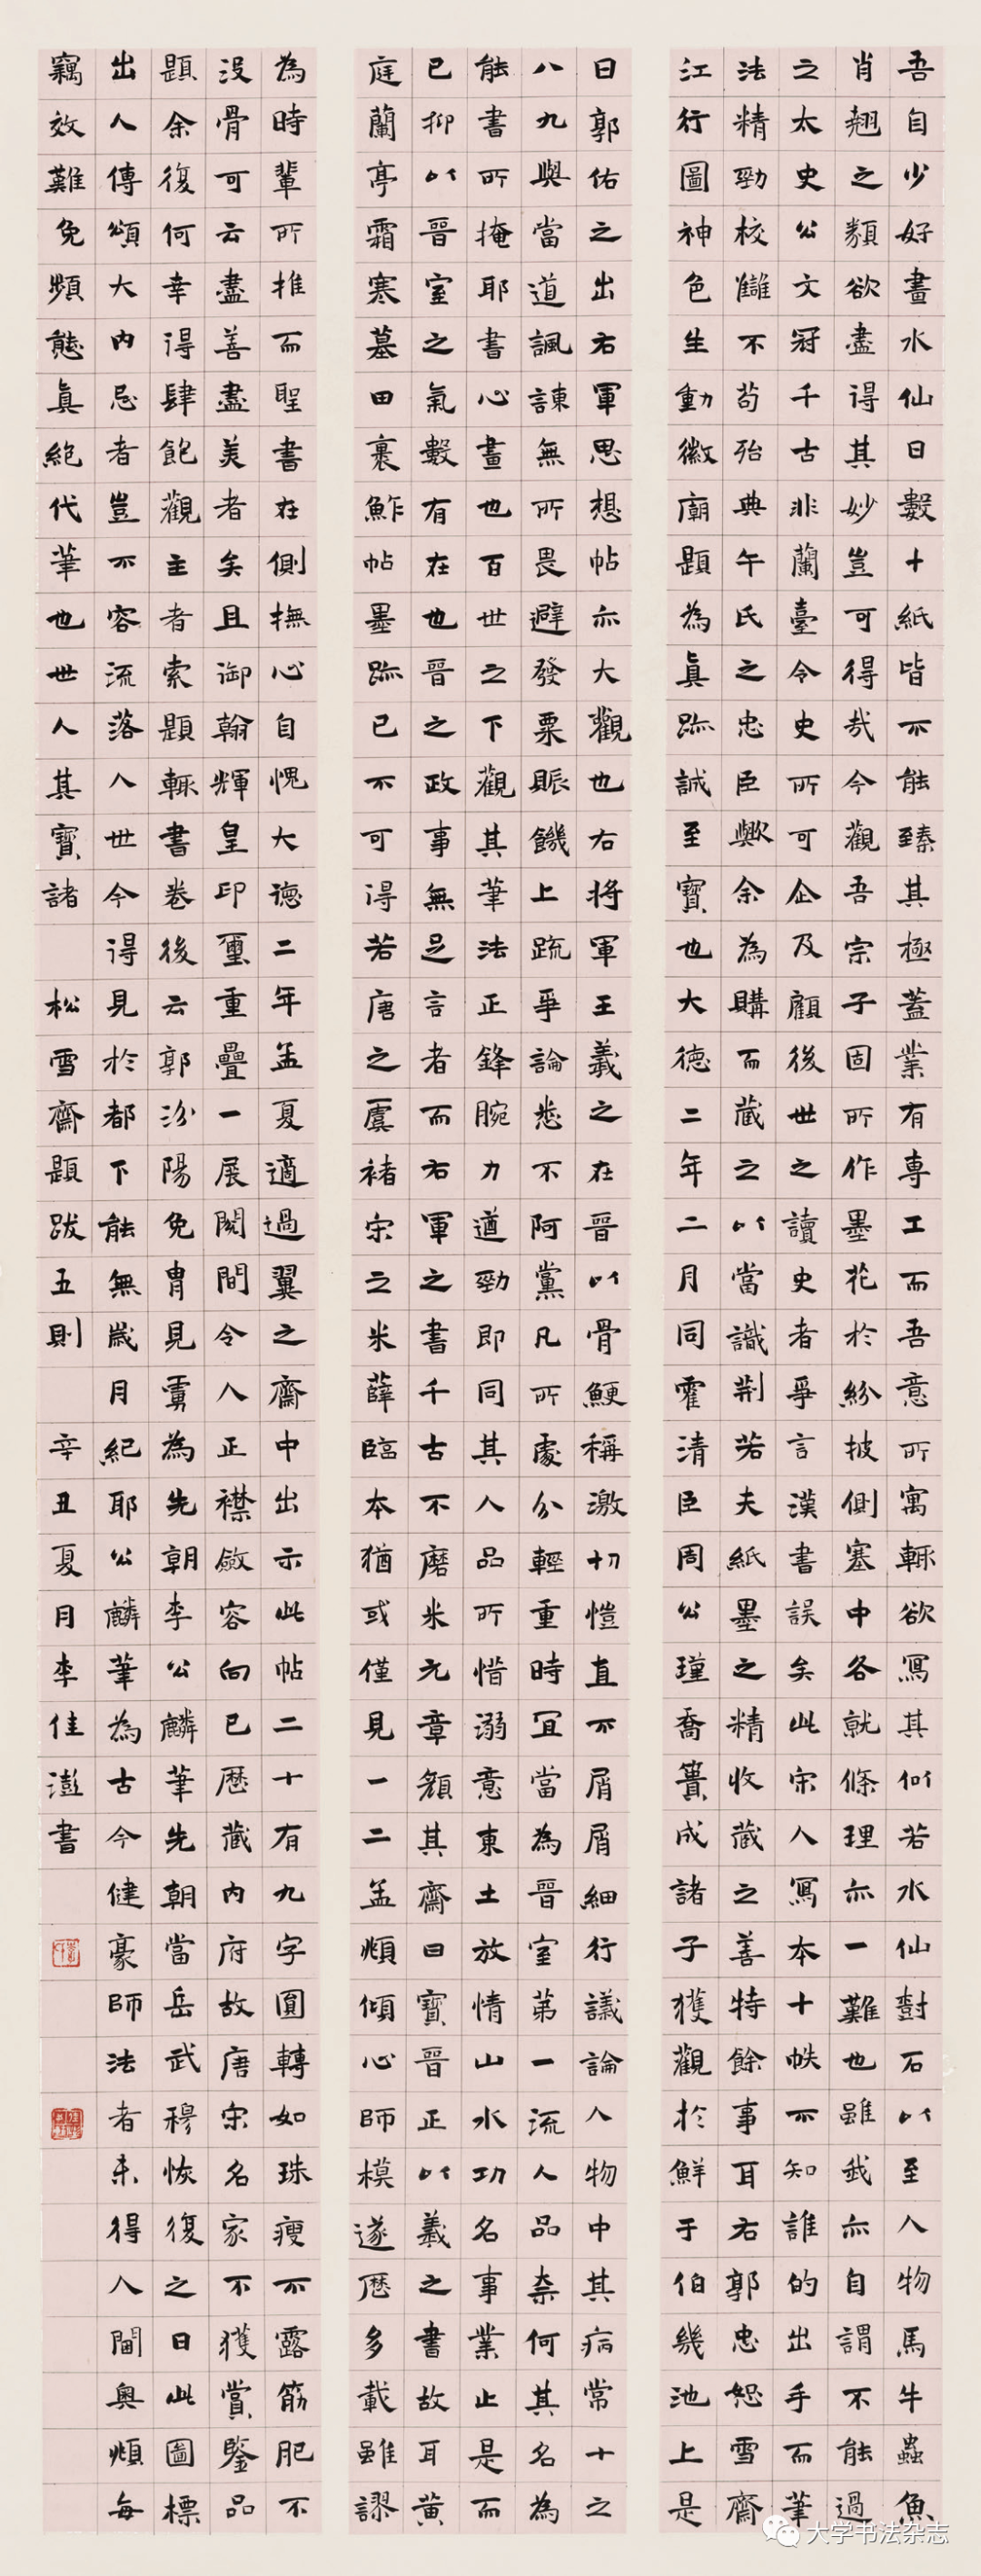 吾自少好畫水仙日數十紙皆不能臻其極蓋業有專工而吾意所寓輒欲寫其似若水仙對石以至人物馬牛蟲魚
肖翹之類欲盡得其妙豈可得哉今觀吾宗子固所作墨花於紛披側塞中各就條理亦一難也雖我亦自謂不能過
之太史公文冠千古非蘭臺令史所可企及顧後世之讀史者爭言漢書誤矣此宋人寫本十帙不知誰的出手而筆
法精勁校讎不苟殆典午氏之忠臣歟余為購而藏之以當識荆若夫紙墨之精收藏之善特餘事耳右郭忠恕雪齋
江行圖神色生動徽廟題為真跡誠至寶也大德二年二月同霍清臣周公瑾喬簣成諸子獲觀於鮮于伯幾池上是
日郭佑之出右軍思想帖亦大觀也右將軍王羲之在晉以骨鯁稱激切愷直不屑屑細行議論人物中其病常十之
八九與當道諷諫無所畏避發粟賑饑上疏爭論悉不阿黨凡所處分輕重時宜當為晉室第一流人品柰何其名為
能書所掩耶書心畫也百世之下觀其筆法正鋒腕力遒勁即同其人品所惜溺意東土放情山水功名事業止是而
已抑以晉室之氣數有在也晉之政事無足言者而右軍之書千古不磨米元章顏其齋曰寶晉正以羲之書故耳黃
庭蘭亭霜寒墓田裹鮓帖墨跡已不可得若唐之虞褚宋之米薛臨本猶或僅見一二孟頫傾心師模遂歷多載雖謬
為時輩所推而聖書在側撫心自愧大德二年孟夏適過翼之齋中出示此帖二十有九字圓轉如珠瘦不露筋肥不
沒骨可云盡善盡美者矣且御翰輝皇印璽重疊一展閱間令人正襟斂容向已歷藏內府故唐宋名家不獲賞鑒品
題余復何幸得肆飽觀主者索題輒書卷後云郭汾陽免胄見虜為先朝李公麟筆先朝當岳武穆恢復之日此圖標
出人傳頌大內忌者豈不容流落人世今得見於都下能無歲月紀耶公麟筆為古今健豪師法者未得入閫奧頫每
竊效難免頻態真絕代筆也世人其寶諸 松雪齋題跋五則 辛丑夏月李佳澎書
大学书法杂志